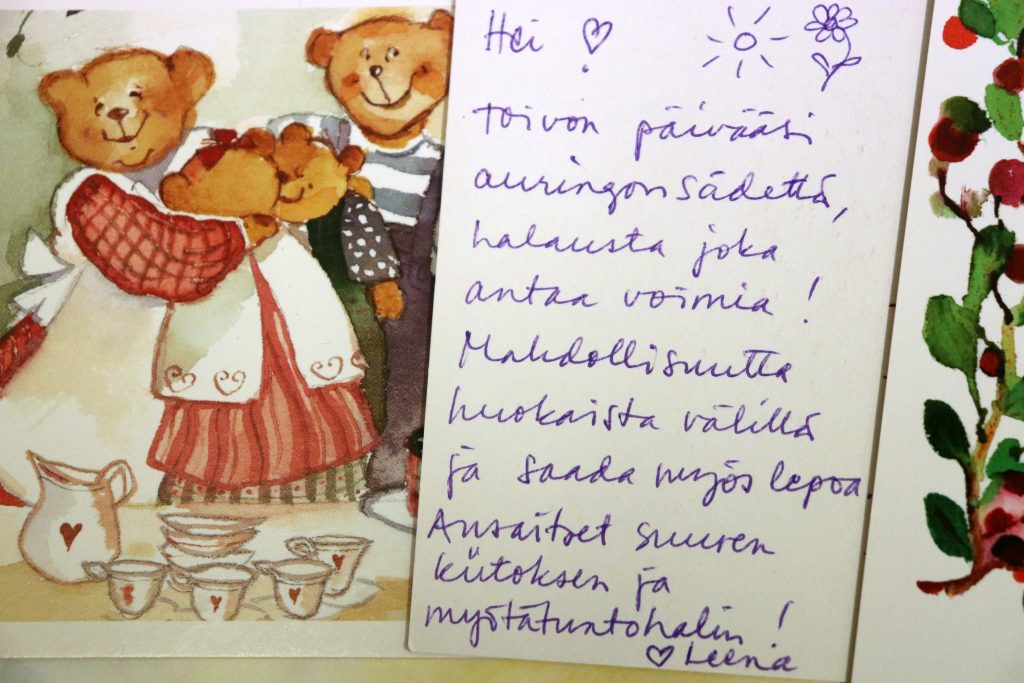 Hei ♡
Toivon päivääsi
auringonsädettä,
halausta joka
antaa voimia!
Mahdollisuutta
huokaista välillä
ja saada myös lepoa
Ansaitset suuren
kiitoksen ja
myötätuntohalin!
♡ Leena